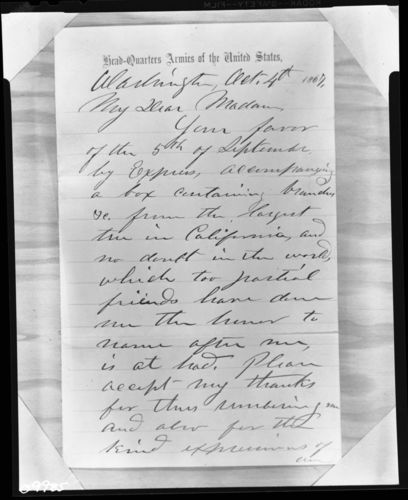 Head-Quarters Armies of the United States,
Washington, Oct. 4th 1867,
My Dear Madam,
Your favor
of the 5th of September
by Express, accompanying
a box containing branches
&c. from the largest
tree in California, and
no doubt in the world,
which too partial
friends have done
me the honor to
name after me,
is at had. Please
accept my thanks
for thus remembering me
and also for the
kind expressions of